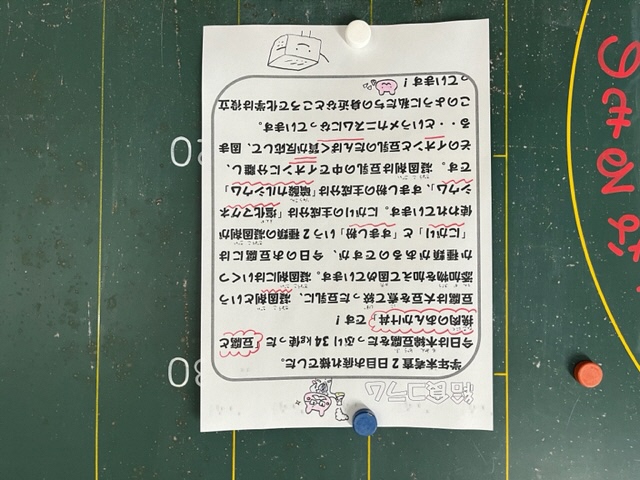 給食コラム
学年末考査2日目お疲れ様でした。
今日は木綿豆腐をたっぷり34kg使った「豆腐と
挽肉のあんかけ丼」です!
豆腐は大豆を煮て絞った豆乳に、凝固剤という
添加物を加えて固めています。凝固剤にはいくつ
か種類があるのですが、今日のお豆腐には
「にがり」と「すまし粉」いう2種類の凝固剤が
使われています。にがりの主成分は「塩化マグネ
シウム」、すまし粉の主成分は「硫酸カルシウム」
です。凝固剤は豆乳の中でイオンに分離し、
そのイオンと豆乳のたんぱく質が反応して、固ま
る・・というメカニズムになっています。
このように私たちの身近なところで化学は役立
っています!